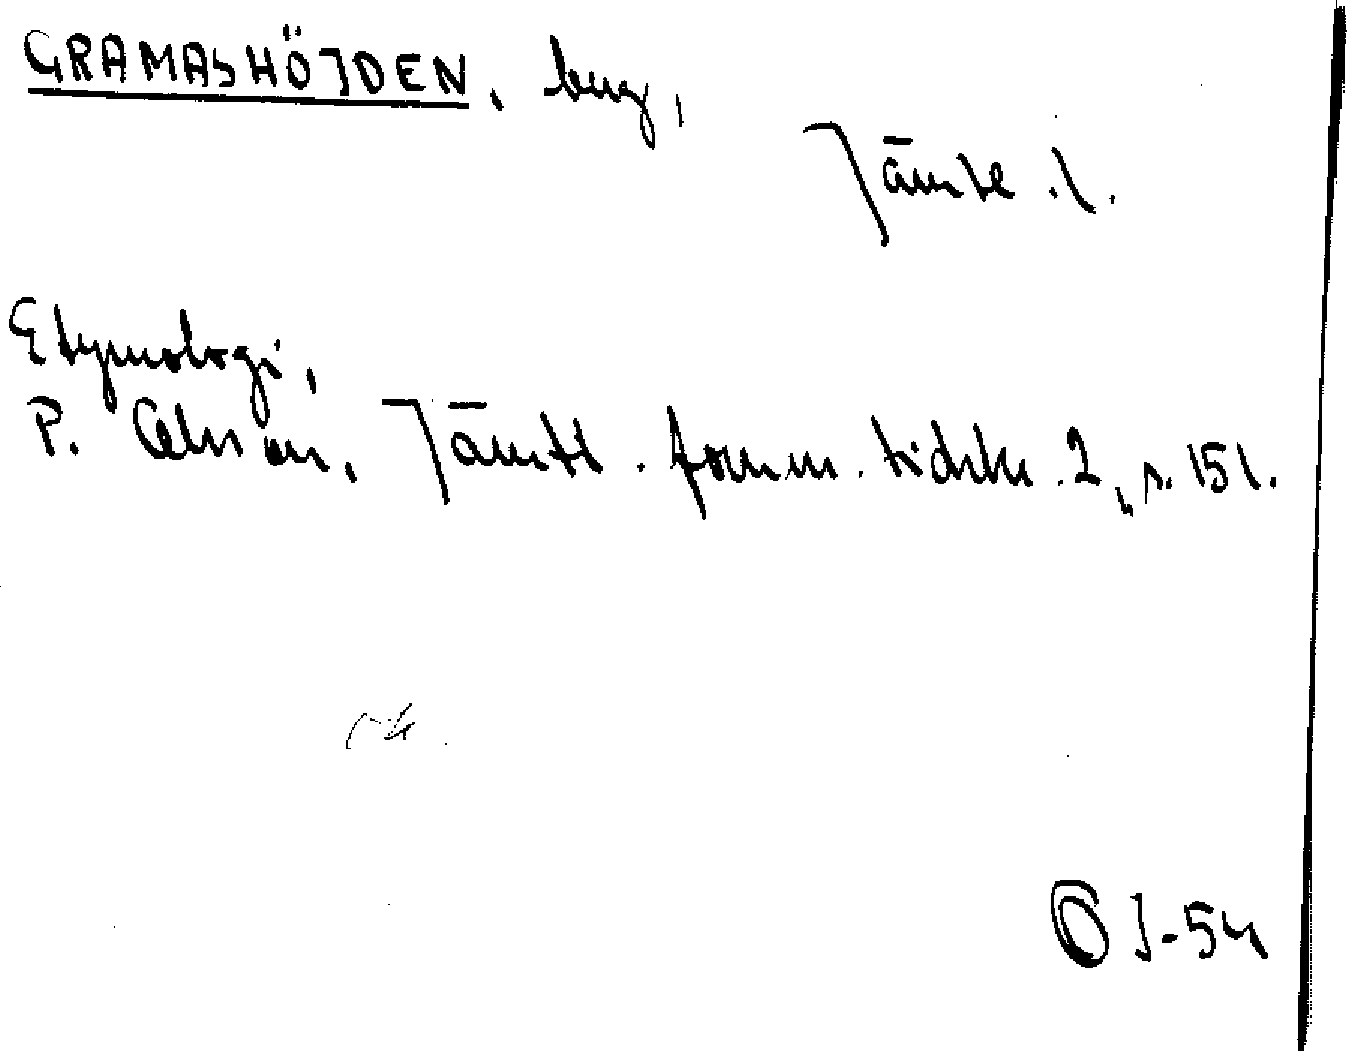 GRAMASHÖJDEN, berg,
Jämtl.
Etymologi,
P. Olsson, Jämtl. fornm. tidskr. 2, s. 151.
J-54